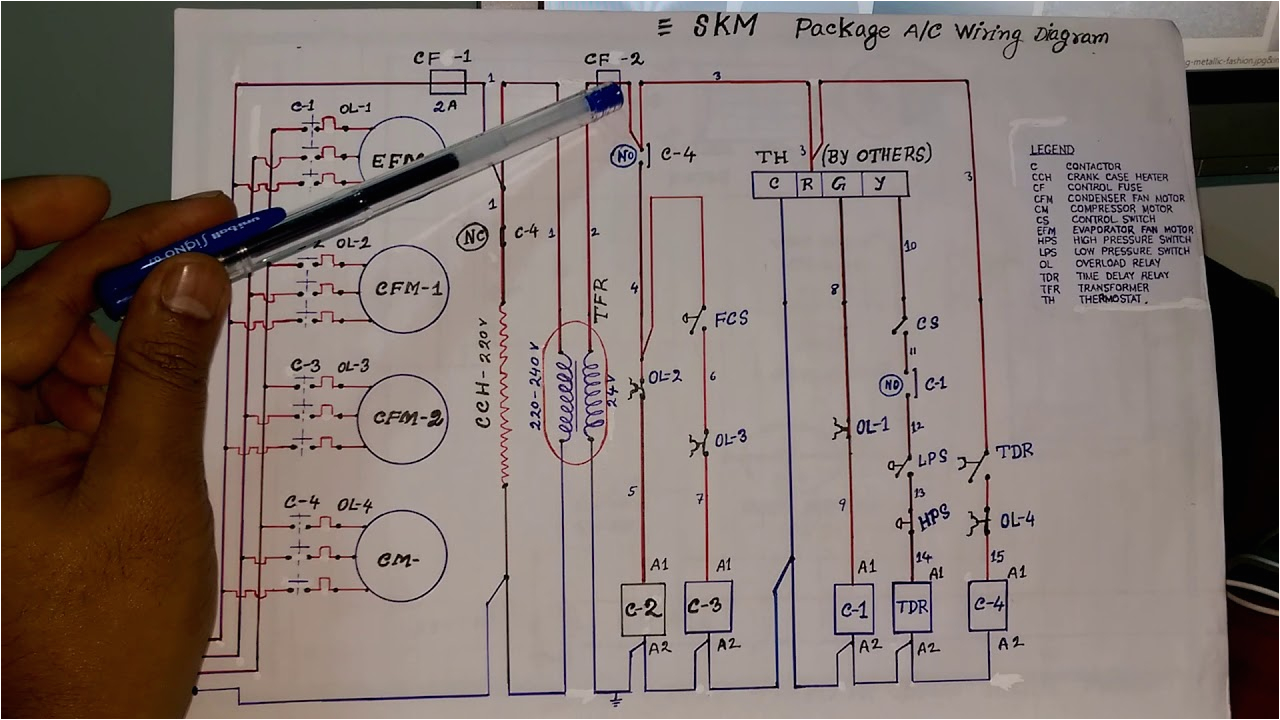 ≡ SKM Package A/C Wiring Diagram
g-metallic-fashion.jpg&im
CF -1
CF -2
1
3
2A
C-1 OL-1
EFM
NO C-4
TH 3 (BY OTHERS)
C R G Y
3
LEGEND
C CONTACTOR
CCH CRANK CASE HEATER
CF CONTROL FUSE
CFM CONDENSER FAN MOTOR
CM COMPRESSOR MOTOR
CS CONTROL SWITCH
EFM EVAPORATOR FAN MOTOR
HPS HIGH PRESSURE SWITCH
LPS LOW PRESSURE SWITCH
OL OVERLOAD RELAY
TDR TIME DELAY RELAY
TFR TRANSFORMER
TH THERMOSTAT.
uniball SigNO 0.7
1
NC C-4 1 2
10
2 OL-2
CFM-1
TFR
4
8
FCS
CS
CCH-220V
220-240V
24V
11
C-3 OL-3
OL-2
6
NO C-1
CFM-2
OL-3
OL-1
12
LPS
TDR
5
7
9
13
C-4 OL-4
HPS
OL-4
CM-
14
15
A1
A1
A1
A1
A1
C-2
C-3
C-1
TDR
C-4
A2
A2
A2
A2
A2